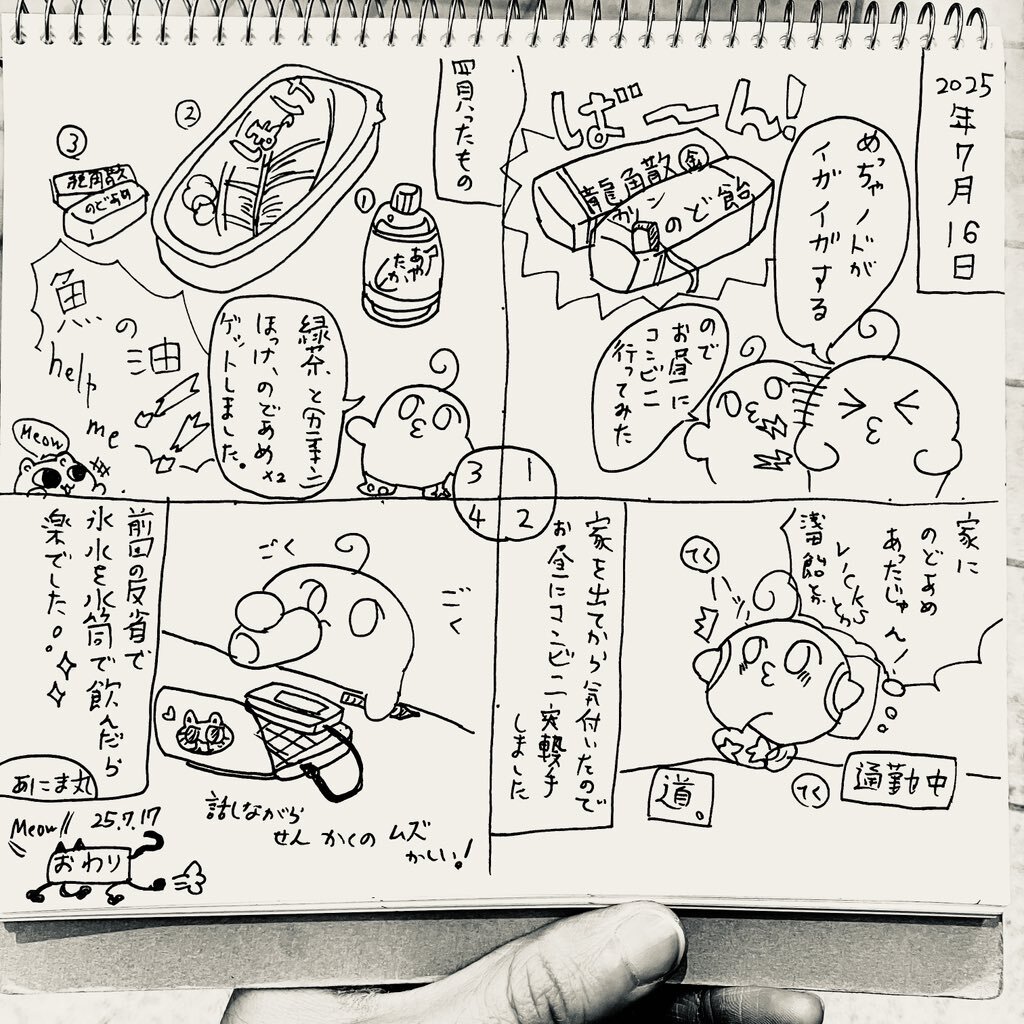 2025年7月16日
ばーん!
めっちゃノドが
イガイガする
龍角散
のど飴
ので
お昼に
コンビニ
行ってみた
1
2
3
4
家に
のどあめ
あったじゃん!
VICKSとか
浅田飴とか
てく
てく
通勤中
道。
家を出てから気付いたので
お昼にコンビニ突撃
しました
買ったもの
①
あや
たか
②
③
龍角散
のどあめ
緑茶、と
ほっけ、のどあめx2
ゲットしました。
魚の油
help
me
Meow
ごく
ごく
話しながら
せんかくの ムズ
かしい!
前回の反省で
氷水を水筒で飲んだら
楽でした。
あにま丸
25.7.17
Meow!!
おわり